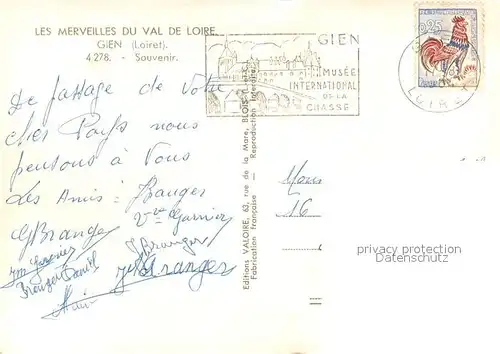 LES MERVEILLES DU VAL DE LOIRE
GIEN (Loiret).
4 278. - Souvenir.
GIEN
MUSÉE
INTERNATIONAL
DE LA
CHASSE
0,25
LOIRE
De passage de Votre
cher Pays nous
pensons à Vous
Les Amis: Branger
Vve Garnier
G Branger
J Branger
J Branger
Editions VALOIRE, 63, rue de la Mare, BLOIS
Fabrication française - Reproduction interdite
16
privacy protection
Datenschutz